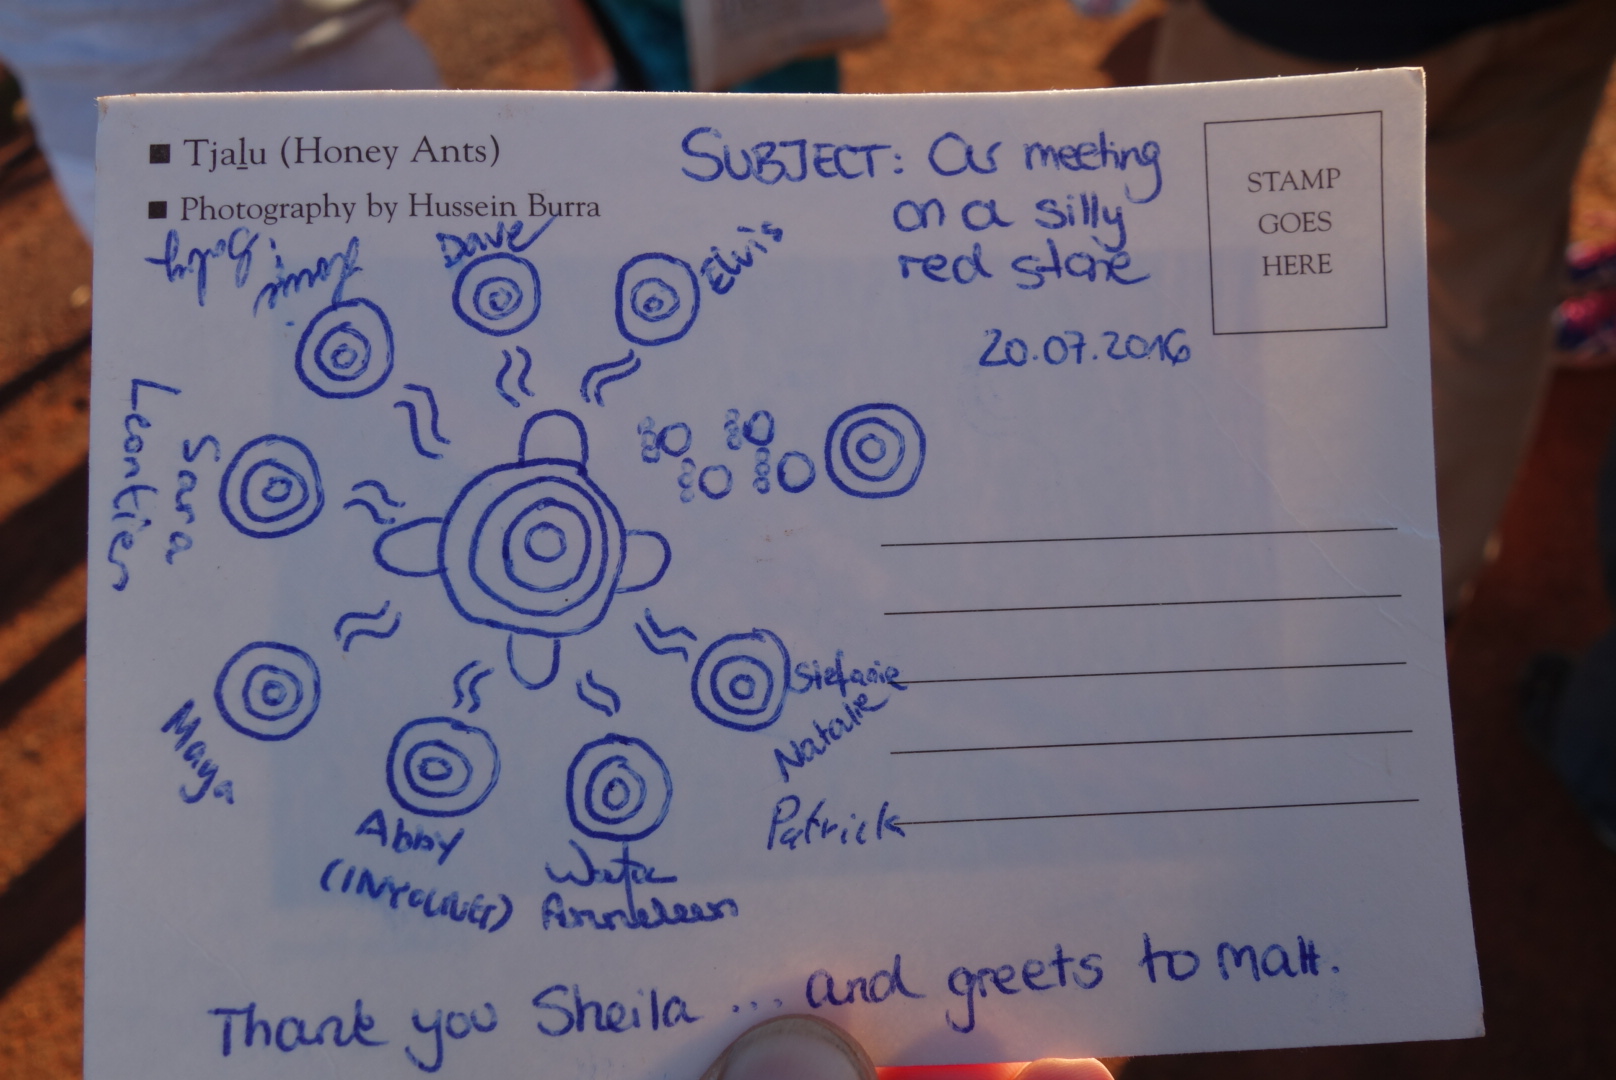 ■ Tjaḻu (Honey Ants)
■ Photography by Hussein Burra
SUBJECT: Our meeting
on a silly
red stone
20.07.2016
STAMP
GOES
HERE
Dave
Elvis
Sara
Leontien
Maya
Abby
Stefanie
Natalie
Patrick
Anneleen
Thank you Sheila ... and greets to Matt.